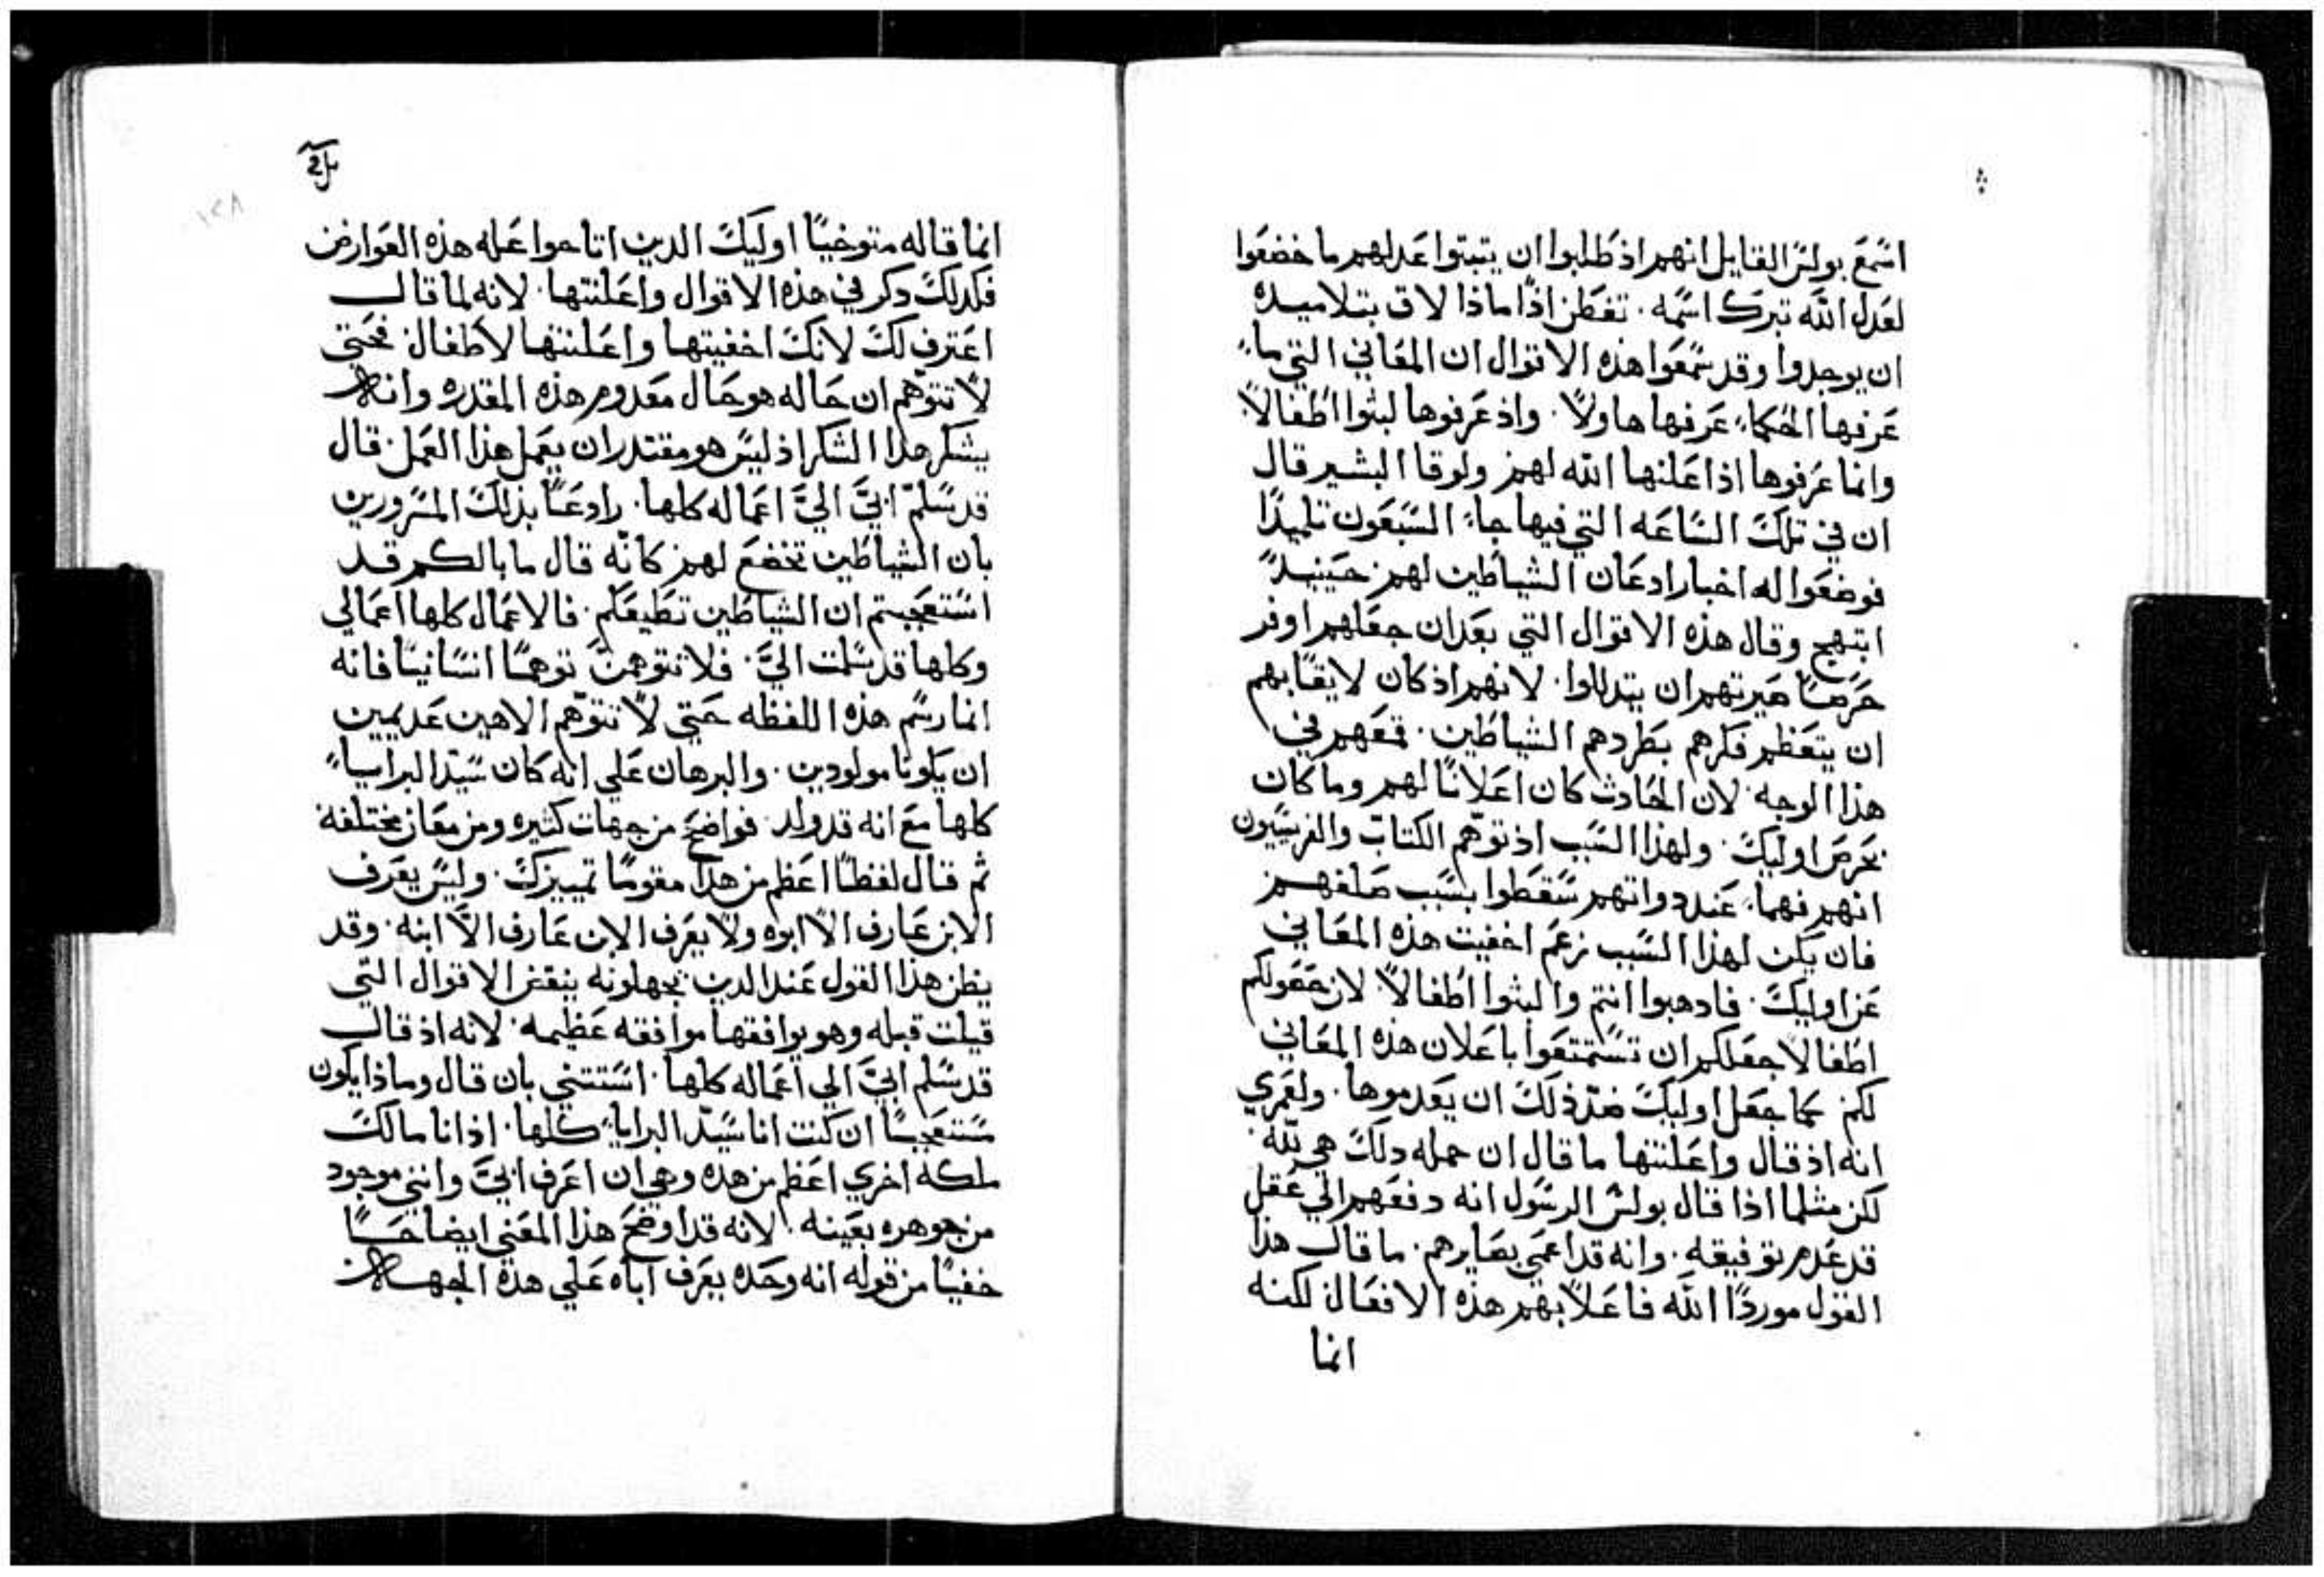 اسمع بولس القايل انهم اذ طلبوا ان يتبتوا عدلهم ما خضعوا
لعدل الله تبرك اسمه. تفطن اذا ماذا لاق بتلاميده
ان يوجدوا وقد سمعوا هذه الاقوال ان المعاني التي ما
عرفها الحكماء عرفها هاولاء. واذ عرفوها لبثوا اطفالا
وانما عرفوها اذ اعلنها الله لهم ولوقا البشير قال
ان في تلك الساعه التي فيها جاء السبعون تلميذا
فوضعوا له اخبار ادعان الشياطين لهم حينيد
ابتهج وقال هذه الاقوال التي بعد ان جعلهم اوفر
حرصا صيرتهم ان يتدللوا. لانهم اذ كان لايقا بهم
ان يتعظم فكرهم بطردهم الشياطين. قمعهم في
هذا الوجه. لان الحادث كان اعلانا لهم وما كان
بحرص اوليك. ولهذا السبب اذ توهم الكتاب والفريسيون
انهم فهماء عند دواتهم سقطوا بسبب صلفهم
فان يكن لهذا السبب زعم اخفيت هذه المعاني
عن اوليك. فادهبوا انتم والبثوا اطفالا لان حقولكم
اطفالا جعلكم ان تستمتعوا باعلان هذه المعاني
لكم كما جعل اوليك ضد ذلك ان يعدموها. ولعمري
انه اذ قال واعلنتها ما قال ان جمله دلك هي لله
لكن مثلما اذا قال بولس الرسول انه دفعهم الي عقل
قد عدم توفيقه. وانه قد اعمي بصايرهم. ما قال هذا
القول موردا الله فاعلا بهم هذه الافعال لكنه
انما
انما قاله متوخيا اوليك الدين اتاحوا عله هذه العوارض
فكدلك دكر في هذه الاقوال واعلنتها. لانه لما قال
اعترف لك لانك اخفيتها واعلنتها لاطفال فحتى
لا تتوهم ان حاله هو حال معدوم هذه المقدره وانه
يشكر هدا الشكر اذ ليس هو مقتدر ان يعمل هذا العمل. قال
قد سلم ابي الي اعماله كلها. رادعا بذلك المسرورين
بان الشياطين تخضع لهم كانه قال ما بالكم قد
استعجبتم ان الشياطين تطيعكم. فالاعمال كلها اعمالي
وكلها قد سلمت الي. فلا تتوهمن توهما انسانيا فانه
انما رسم هذه اللفظه حتي لا تتوهم الاهين عديمين
ان يكونا مولودين. والبرهان علي انه كان سيد البرايا
كلها مع انه قد ولد. فواضح من جهات كثيره ومن معان مختلفه
ثم قال لفظا اعظم من هدا مقوما تمييزك. وليس يعرف
الابن عارف الا ابوه ولا يعرف الاب عارف الا ابنه. وقد
يظن هذا القول عند الدين يجهلونه ينقض الاقوال التي
قيلت قبله وهو يوافقها موافقه عظيمه. لانه اذ قال
قد سلم ابي الي اعماله كلها. استتني بان قال وماذا يكون
مستعجبا ان كنت انا سيد البرايا كلها. اذ انا مالك
ملكه اخري اعظم من هده وهي ان اعرف ابي وانني موجود
من جوهره بعينه. لانه قد اوضح هذا المعني ايضاحا
خفيا من قوله انه وحده يعرف اباه علي هذه الجهه